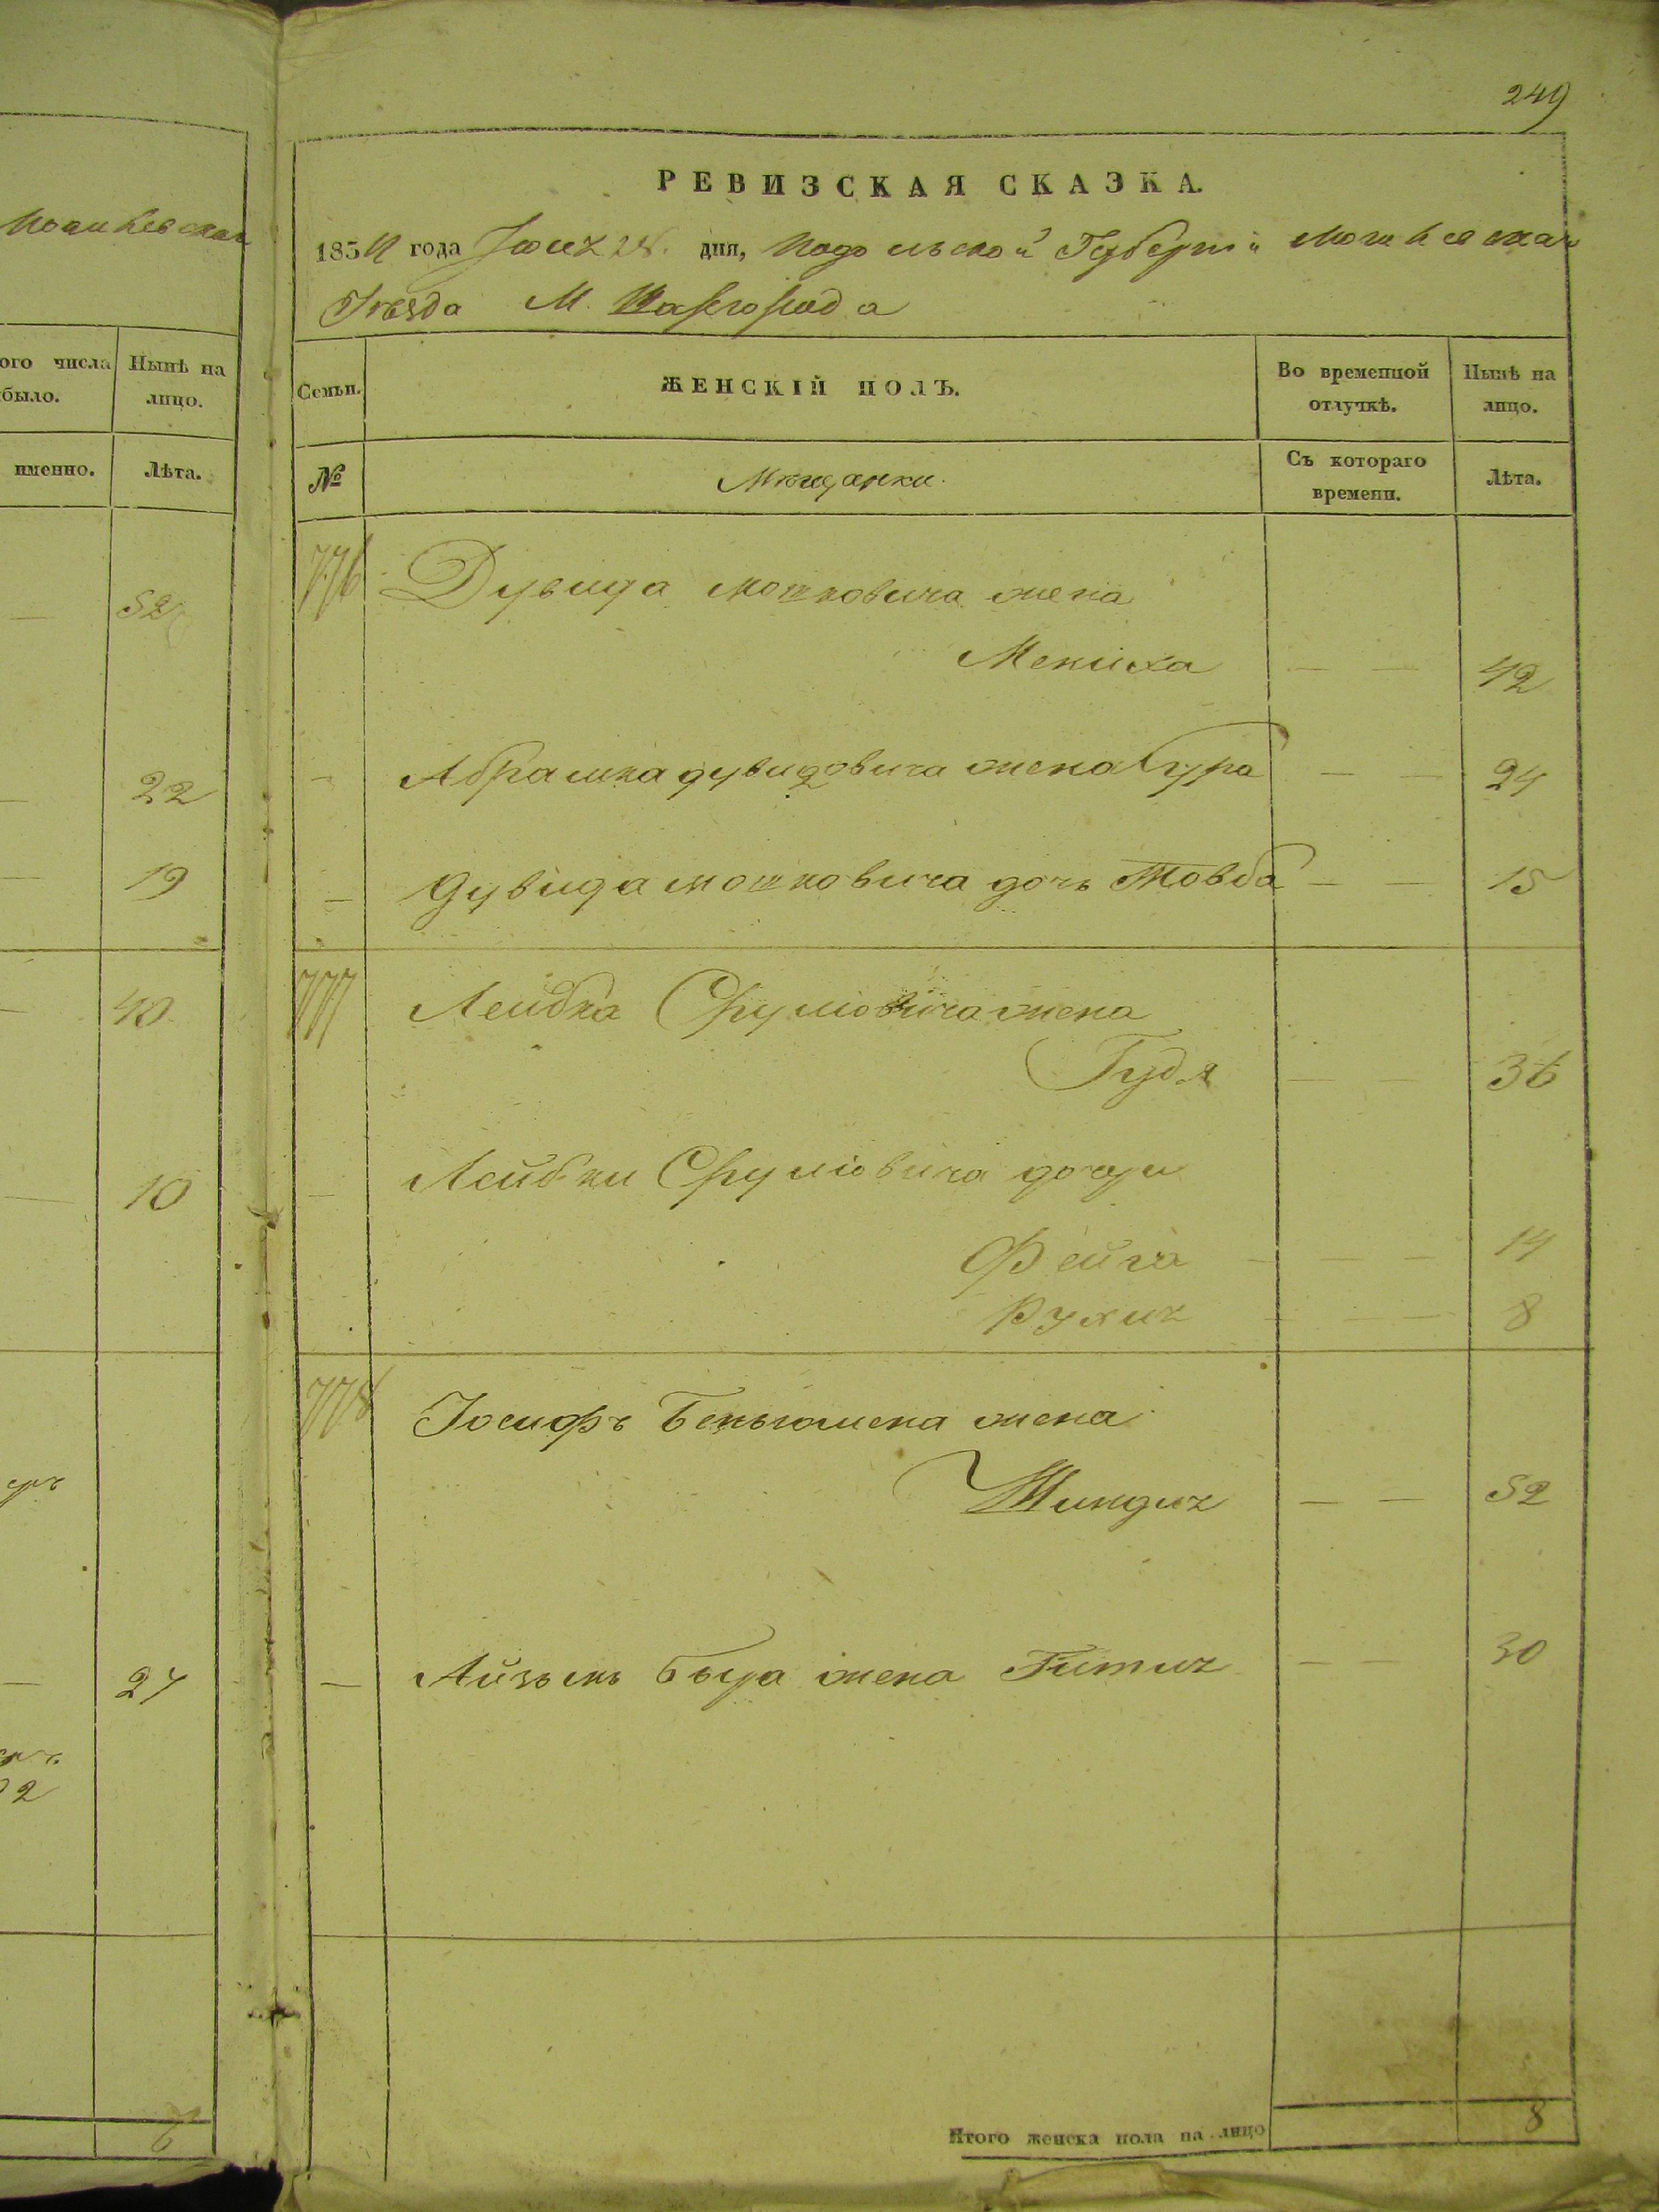 249
РЕВИЗСКАЯ СКАЗКА.
185 года Июня дня, Подольской Губерніи Могилевскаго
Уѣзда М. Шаргорода
ого числа
было.
Нынѣ на
лицо.
Семьи.
ЖЕНСКІЙ ПОЛЪ.
Во временной
отлучкѣ.
Нынѣ на
лицо.
именно.
Лѣта.
№
Мѣщанки.
Съ котораго
времени.
Лѣта.
776 Дувида Мошковича жена
52
Мениха — — 42
22
- Абрамка Дувидовича жена Сура — — 24
19
— Дувида Мошковича дочь Товба — — 15
40
777 Лейбка Сруліовича жена
Гудя — — 36
10
— Лейбки Сруліовича дочери
Фейга — — — 14
Рухля — — — 8
778 Іосифъ Беньюмена жена
Шиндля — — 52
27
— Айзыкъ жена Гитля — — 30
Итого женска пола на лицо 8